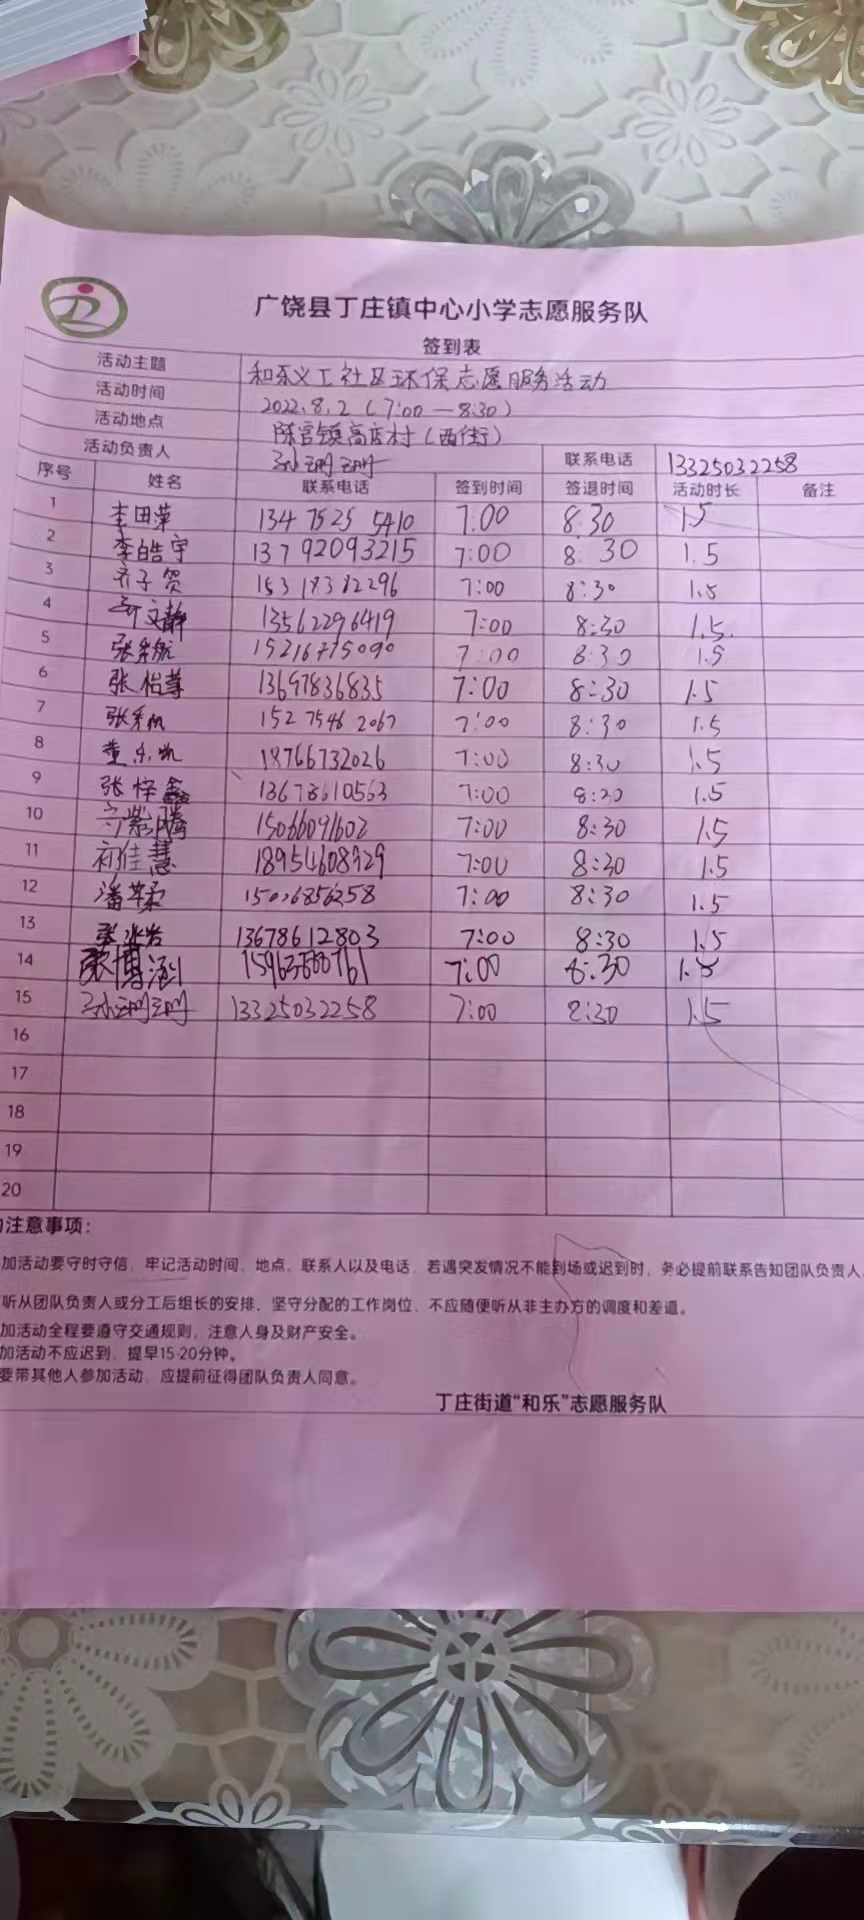 广饶县丁庄镇中心小学志愿服务队
签到表
活动主题 和乐义工社区环保志愿服务活动
活动时间 2022.8.2(7:00—8:30)
活动地点 陈官镇高店村(西街)
活动负责人 孙珊珊 联系电话 13325032258
序号 姓名 联系电话 签到时间 签退时间 活动时长 备注
1 李田萍 134 7525 5410 7:00 8:30 1.5
2 李皓宇 137 92093215 7:00 8:30 1.5
3 子贺 15318382296 7:00 8:30 1.5
4 文静 13562296419 7:00 8:30 1.5
5 张 航 15216775090 7:00 8:30 1.5
6 张怡尊 13697836835 7:00 8:30 1.5
7 张 帆 152 7546 2067 7:00 8:30 1.5
8 董乐凯 18766732026 7:00 8:30 1.5
9 张梓鑫 13678610563 7:00 8:30 1.5
10 紫腾 15066091602 7:00 8:30 1.5
11 初佳慧 18954608929 7:00 8:30 1.5
12 潘 7:00 8:30 1.5
13 张 岩 13678612803 7:00 8:30 1.5
14 张博涵 7:00 8:30 1.5
15 孙珊珊 13325032258 7:00 8:30 1.5
16
17
18
19
20
注意事项:
加活动要守时守信,牢记活动时间、地点、联系人以及电话,若遇突发情况不能到场或迟到时,务必提前联系告知团队负责人
听从团队负责人或分工后组长的安排,坚守分配的工作岗位,不应随便听从非主办方的调度和差遣。
加活动全程要遵守交通规则,注意人身及财产安全。
加活动不应迟到,提早15-20分钟。
要带其他人参加活动,应提前征得团队负责人同意。
丁庄街道“和乐”志愿服务队